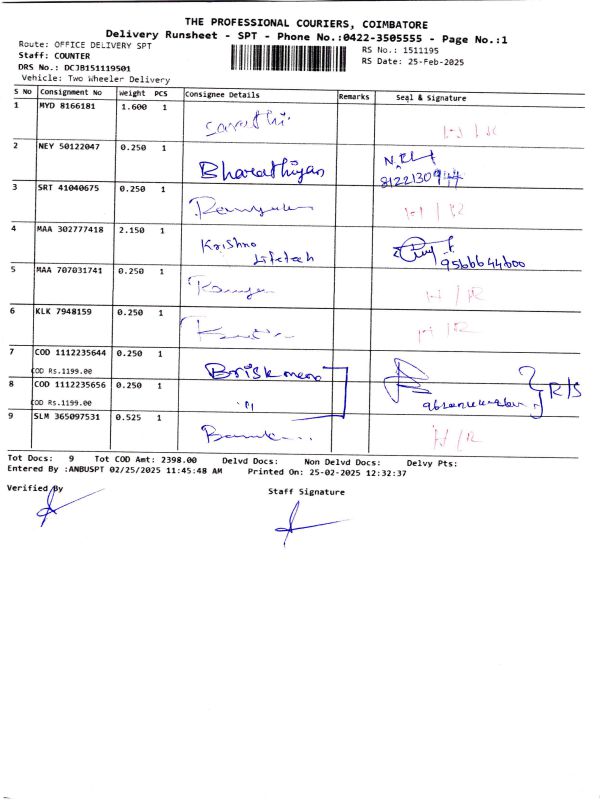 THE PROFESSIONAL COURIERS, COIMBATORE
Delivery Runsheet - SPT - Phone No.:0422-3505555 - Page No.:1
Route: OFFICE DELIVERY SPT
RS No.: 1511195
Staff: COUNTER
RS Date: 25-Feb-2025
DRS No.: DCJB151119501
Vehicle: Two Wheeler Delivery
S No Consignment No Weight PCS Consignee Details Remarks Seal & Signature
1 MYD 8166181 1.600 1
2 NEY 50122047 0.250 1 Bharathiyan
8122130944
3 SRT 41040675 0.250 1
4 MAA 302777418 2.150 1 Krishna
Lifetech
9566644600
5 MAA 707031741 0.250 1
6 KLK 7948159 0.250 1
7 COD 1112235644 0.250 1 Brisk
COD Rs.1199.00
8 COD 1112235656 0.250 1 " R/S
COD Rs.1199.00
9 SLM 365097531 0.525 1
Tot Docs: 9 Tot COD Amt: 2398.00 Delvd Docs: Non Delvd Docs: Delvy Pts:
Entered By :ANBUSPT 02/25/2025 11:45:48 AM Printed On: 25-02-2025 12:32:37
Verified By
Staff Signature